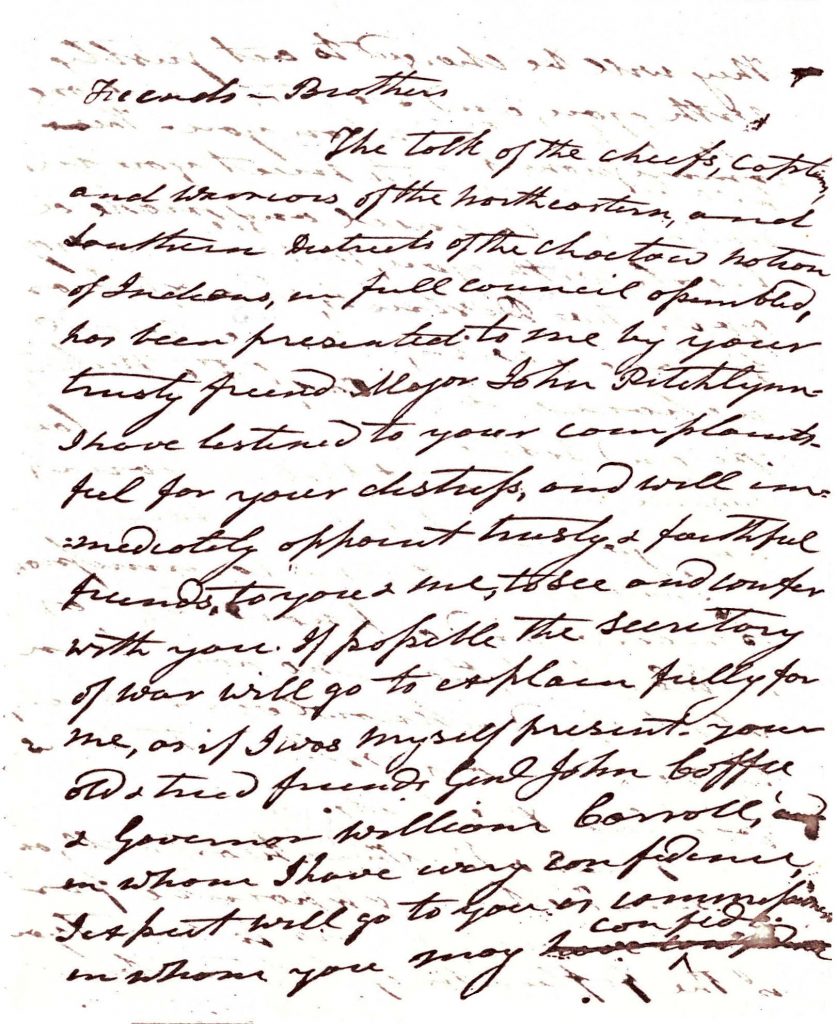 Friends – Brothers
The talk of the chiefs, captins,
and warriors of the northeastern, and
Southern Districts of the Choctaw nation
of Indians, in full council assembled,
has been presented to me by your
trusty friend Major John Pitchlynn –
I have listened to your complaints –
feel for your distress, and will im=
=mediately appoint trusty & faithful
friends, to you & me, to see and confer
with you. If possible the Secretary
of war will go to explain fully for
me, as if I was myself present – your
old & tried friends Genl John Coffee
& Governor William Carroll, and
in whom I have every confidence,
I expect will go to you as commissioners
confide
in whom you may have confidence